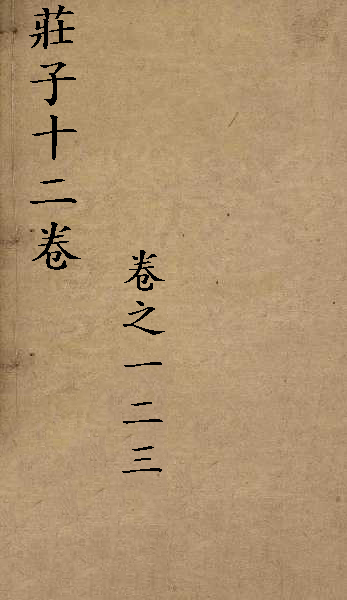 莊子十二卷
卷之一二三